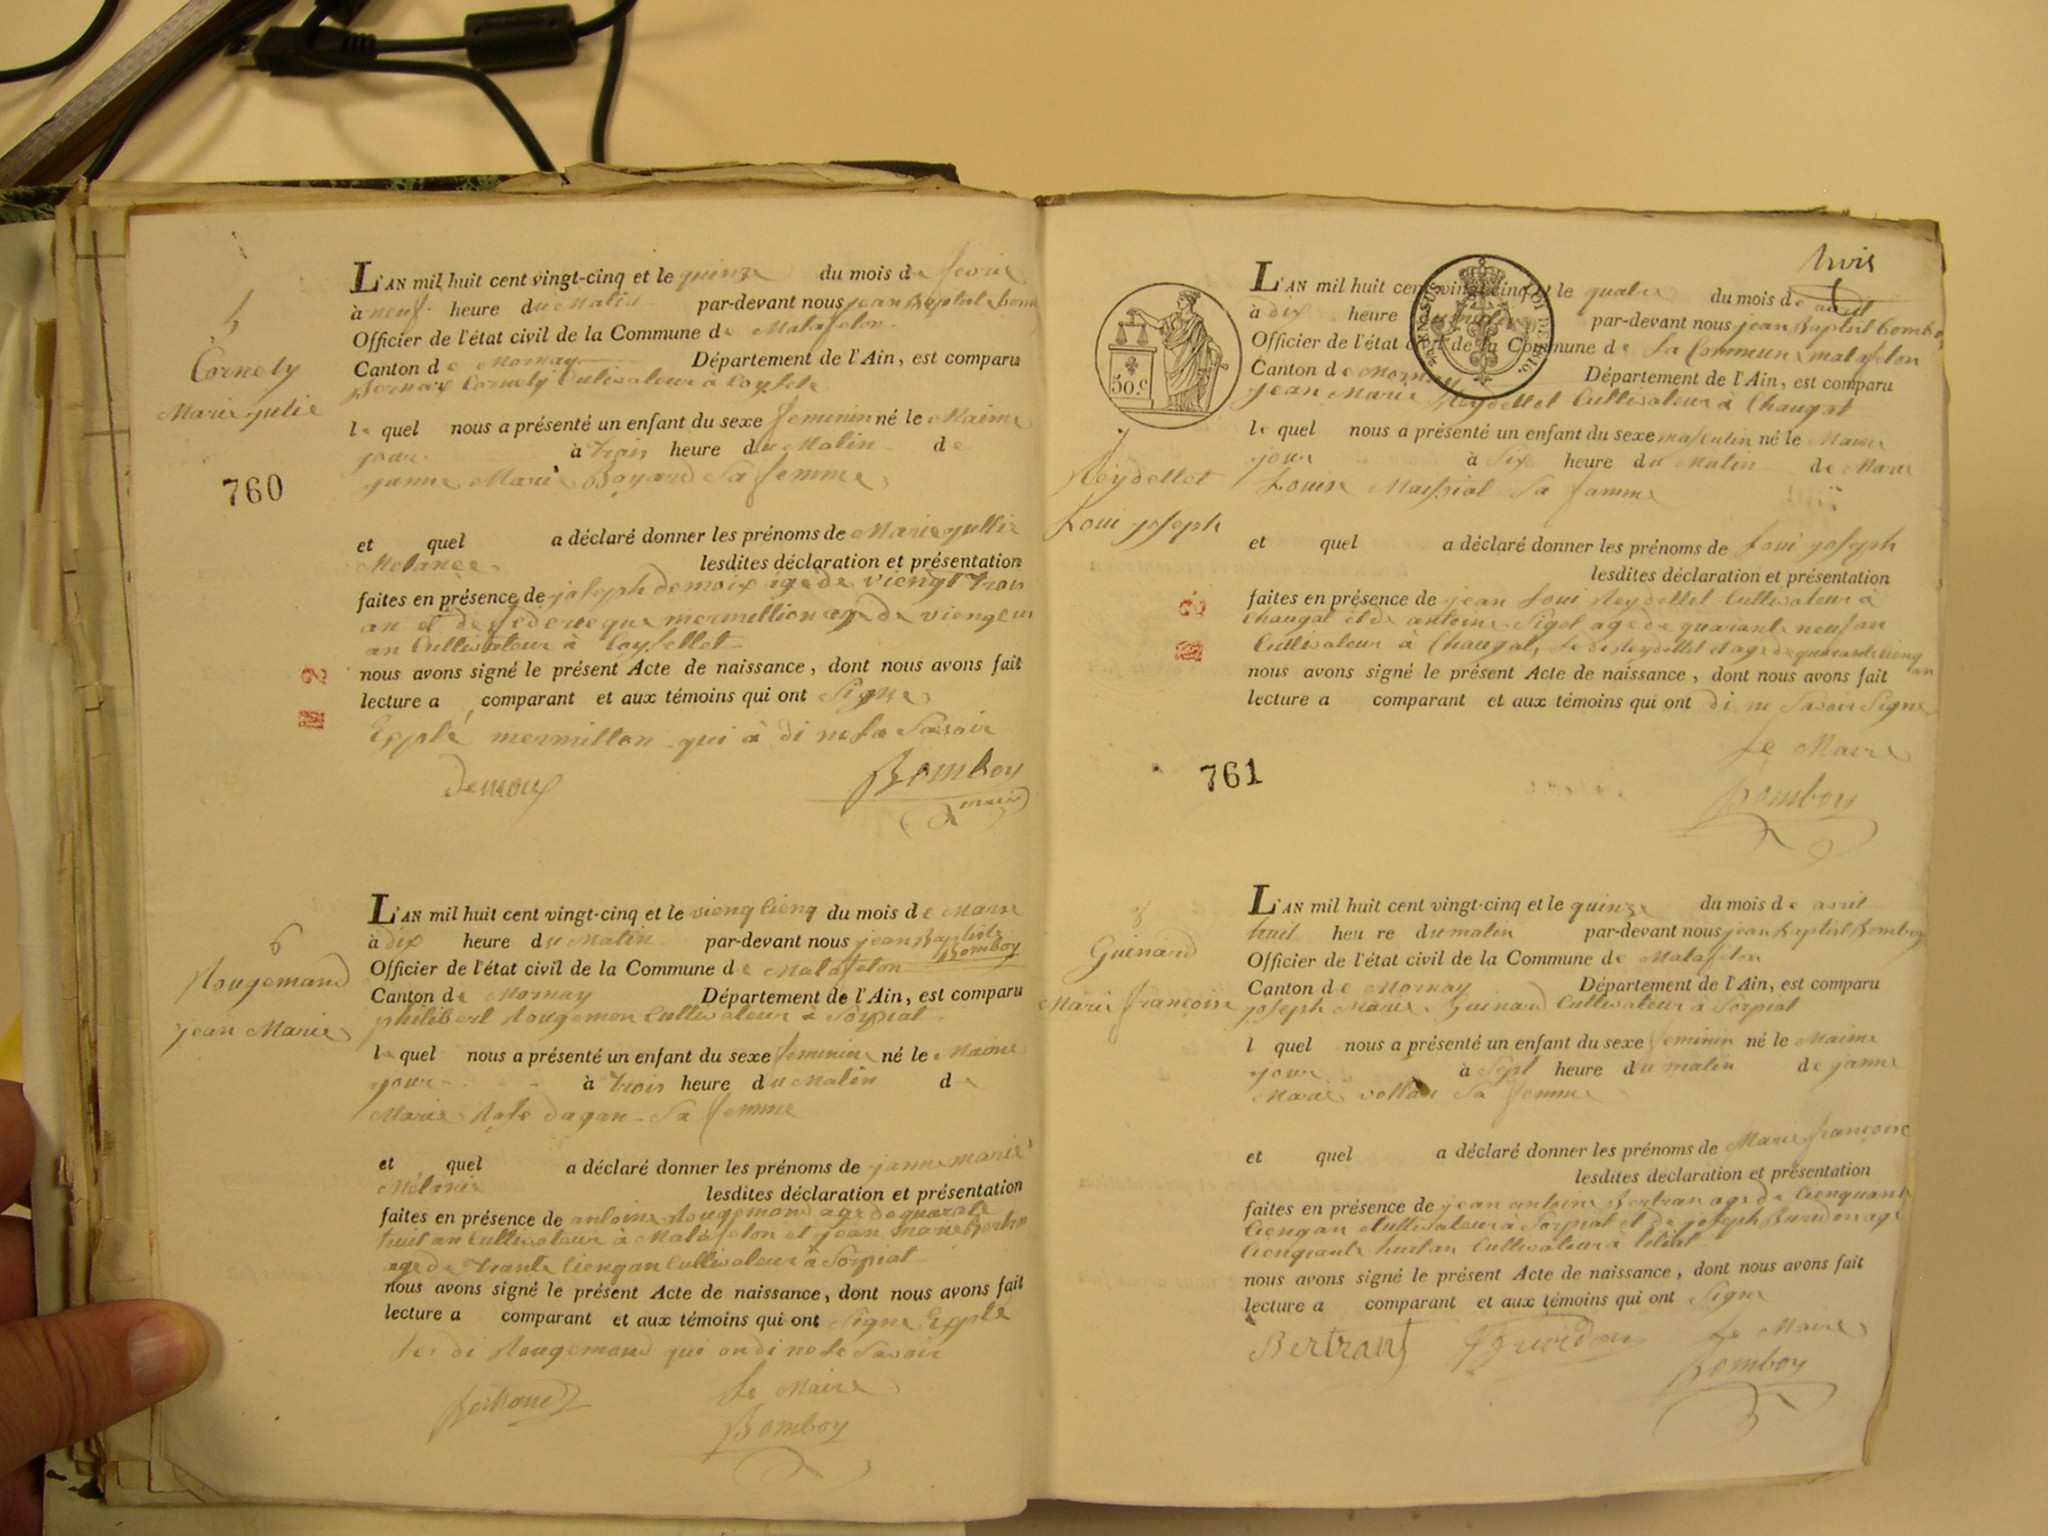 5
Cornely
Marie julie
760
L'AN mil huit cent vingt-cinq et le quinze du mois de fevrie
à neuf heure du Matin par-devant nous jean Baptiste Bom
Officier de l'état civil de la Commune de Matafelon
Canton de Mornay Département de l'Ain, est comparu
Cornely Cultivateur à
le quel nous a présenté un enfant du sexe feminin né le Maime
jour à trois heure du Matin de
janne Marie Boyard Sa femme
et quel a déclaré donner les prénoms de Marie jullie
Melanee lesdites déclaration et présentation
faites en présence de joseph demoix age de viengt trois
an et de federique mermillion age de vieng
an Cultivateur à Coyssellet
nous avons signé le présent Acte de naissance, dont nous avons fait
lecture a comparant et aux témoins qui ont Signe
Expté mermillon qui à di ne le Savoir
Demoux Bomboy
maire
6
Rougemand
jean Marie
L'AN mil huit cent vingt-cinq et le vieng cienq du mois de Marse
à dix heure du Matin par-devant nous jean Baptiste
Bomboy
Officier de l'état civil de la Commune de Matafelon
Canton de Mornay Département de l'Ain, est comparu
philibert Rougemon Cultivateur à Sorpiat
le quel nous a présenté un enfant du sexe feminin né le Maime
jour à trois heure du Matin de
Marie Rose dagan Sa femme
et quel a déclaré donner les prénoms de janne marie
Mélanie lesdites déclaration et présentation
faites en présence de antoine Rougemond age de quarate
huit an Cultivateur à Matafelon et jean marie
age de trante cienq an Cultivateur à Sorpiat
nous avons signé le présent Acte de naissance, dont nous avons fait
lecture a comparant et aux témoins qui ont Signe Expté
les di Rougemond qui on di ne le Savoir
Le Maire
Bomboy
trois
50.c
7
Reydellet
Loui joseph
761
L'AN mil huit cent vingt-cinq et le quatre du mois de avril
à dix heure du Matin par-devant nous jean Baptist Bombo
Officier de l'état civil de la Commune de la Commune matafelon
Canton de Mornay Département de l'Ain, est comparu
jean Marie Reydellet Cultivateur à Chaugat
le quel nous a présenté un enfant du sexe masculin né le Maime
jour à Six heure du Matin de Marie
Louise Sa famme
et quel a déclaré donner les prénoms de Loui joseph
lesdites déclaration et présentation
faites en présence de jean Loui Reydellet Cultivateur à
Chaugat et de antoine Pigol age de quarante neuf an
Cultivateur à Chaugat, Le di Reydellet et age de quarante cienq
an
nous avons signé le présent Acte de naissance, dont nous avons fait
lecture a comparant et aux témoins qui ont di ne Savoir Signe
Le Maire
Bomboy
8
Guinard
Marie françoise
L'AN mil huit cent vingt-cinq et le quinze du mois de avril
huit heure du matin par-devant nous jean Baptist Bomboy
Officier de l'état civil de la Commune de Matafelon
Canton de Mornay Département de l'Ain, est comparu
joseph Marie Guinard Cultivateur à Sorpiat
l quel nous a présenté un enfant du sexe feminin né le Maime
jour à Sept heure du matin de janne
Marie Sa femme
et quel a déclaré donner les prénoms de Marie françoise
lesdites déclaration et présentation
faites en présence de jean antoine Bertran age de Cienquante
Cienq an Cultivateur à Sorpiat et de joseph Buredon age
Cienquante huit an Cultivateur à
nous avons signé le présent Acte de naissance, dont nous avons fait
lecture a comparant et aux témoins qui ont Signe
Bertrant Le Maire
Bomboy